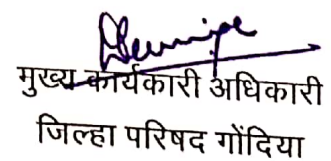 मुख्य कार्यकारी अधिकारी
जिल्हा परिषद गोंदिया